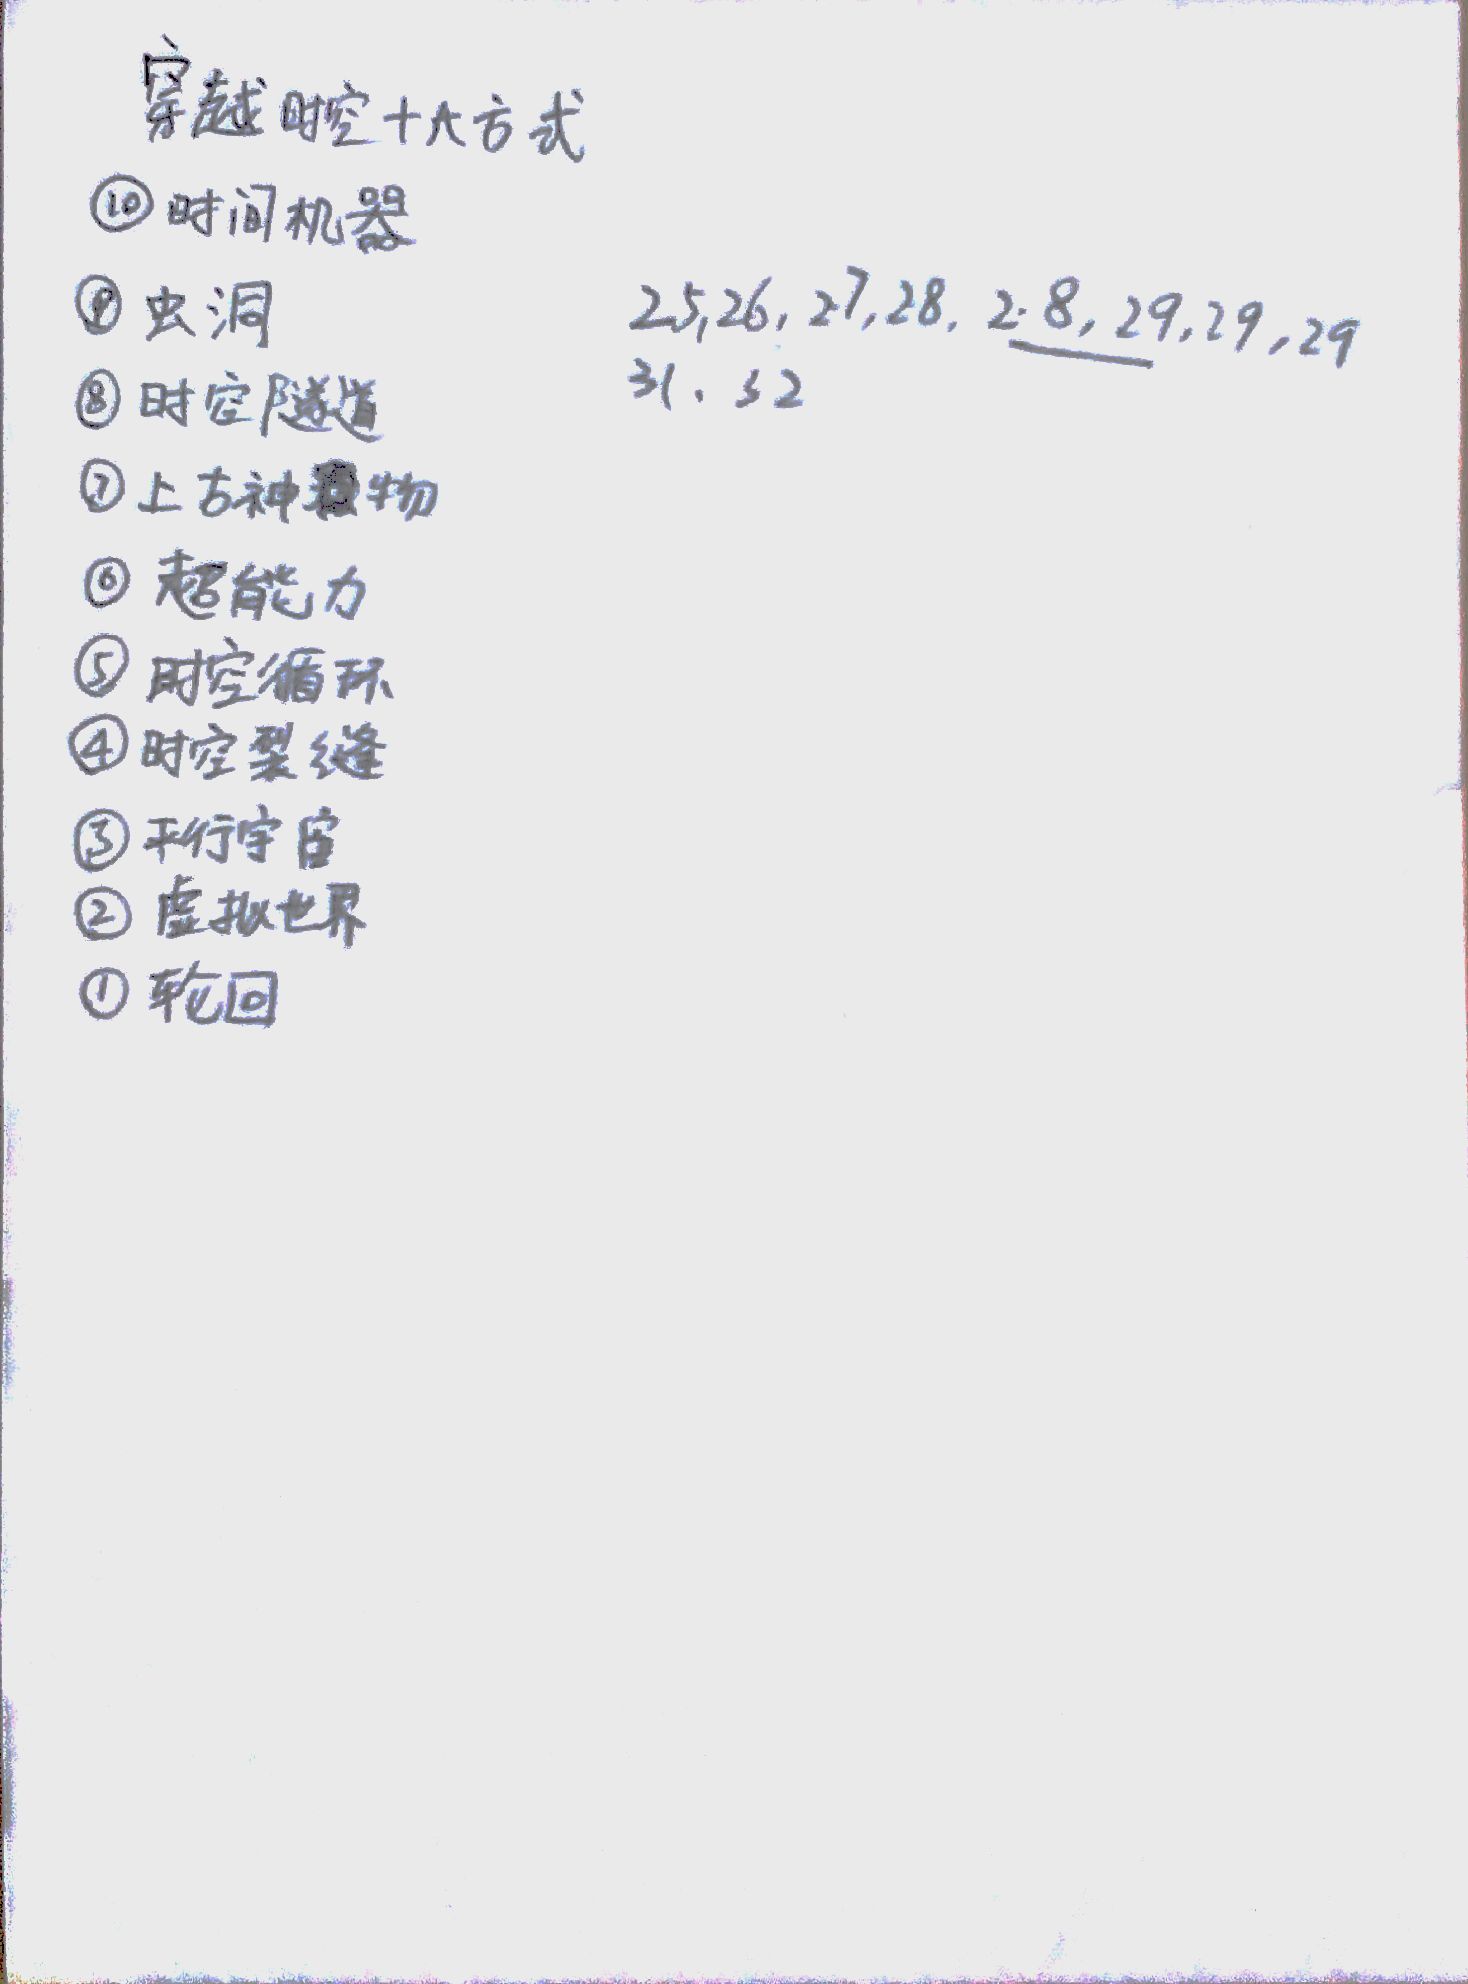 穿越时空十大方式
⑩时间机器
⑨虫洞
⑧时空隧道
⑦上古神物
⑥超能力
⑤时空循环
④时空裂缝
③平行宇宙
②虚拟世界
①轮回
25,26,27,28,28,29,29,29
31、32